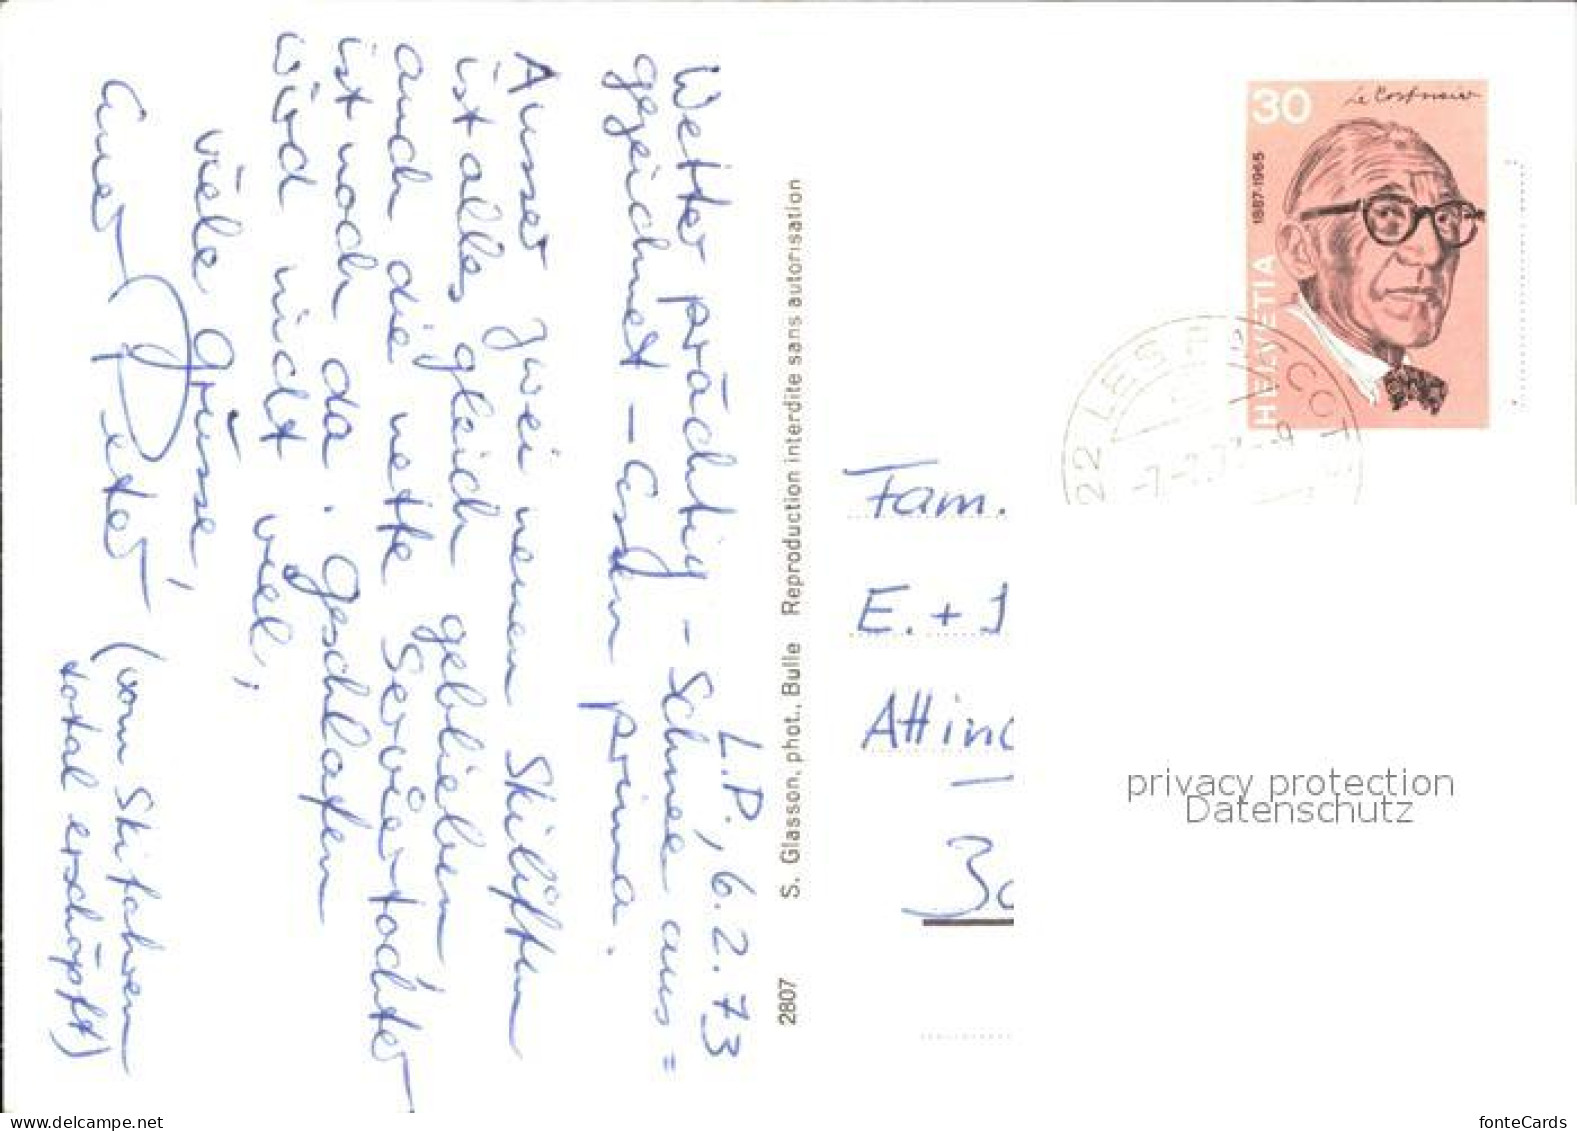 L.P., 6.2.73
Wetter prächtig - Schnee aus=
gezeichnet - Essen prima.
Ausser zwei neuen Skiliften
ist alles gleich geblieben,
auch die nette Serviertochter
ist noch da. Geschlafen
wird nicht viel,
viele Grüsse,
Euer Peter (vom Skifahren
total erschöpft)
2807 S. Glasson, phot., Bulle Reproduction interdite sans autorisation
30
Le Corbusier
1887-1965
HELVETIA
Fam.
E. +
privacy protection
Datenschutz
delcampe.net
fonteCards